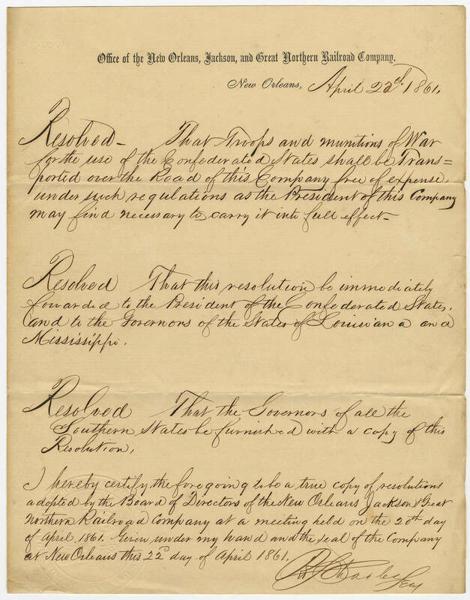 Office of the New Orleans, Jackson, and Great Northern Railroad Company.
New Orleans, April 22d 1861.
Resolved - That Troops and munitions of War
for the use of the Confederated States shall be Trans=
ported over the Road of this Company free of expense,
under such regulations as the President of this Company
may find necessary to carry it into full effect -
Resolved That this resolution be immediately
forwarded to the President of the Confederated States,
and to the Governors of the States of Louisiana and
Mississippi.
Resolved That the Governors of all the
Southern States be furnished with a copy of this
Resolution.
I hereby certify the foregoing to be a true copy of resolutions
adopted by the Board of Directors of the New Orleans Jackson & Great
Northern Railroad Company at a meeting held on the 20th day
of April 1861. Given under my hand and the seal of the Company
at New Orleans this 22d day of April 1861.
Secy